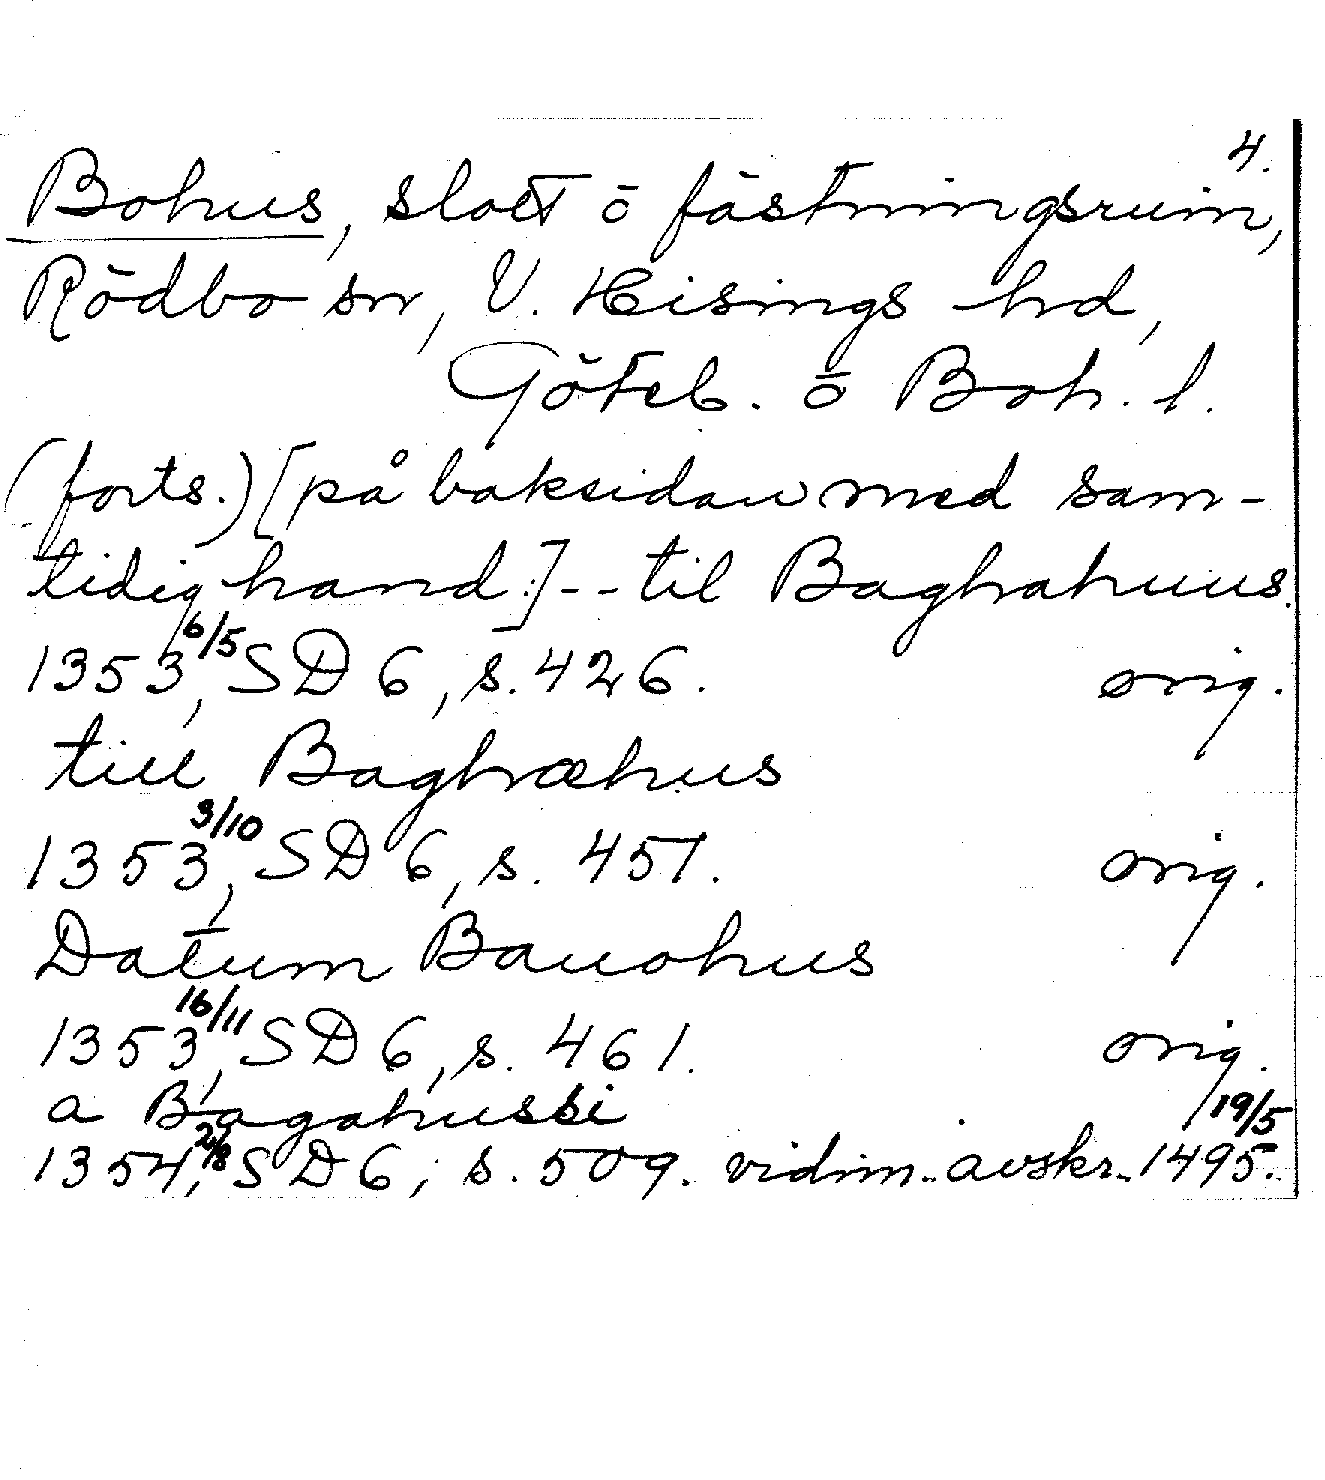 4.
Bohus, slott ō fästningsruin,
Rödbo sn, V. Hisings hd,
Göteb. ō Boh. l.
(forts.) [på baksidan med sam-
tidig hand:] -- til Baghahuus.
1353 6/5, SD 6, s. 426. orig.
till Baghæhus
1353 3/10, SD 6, s. 451. orig.
Datum Bauohus
1353 16/11, SD 6, s. 461. orig.
a Bagahussi 19/5
1354, 2/8 SD 6, s. 509. vidim. avskr. 1495.